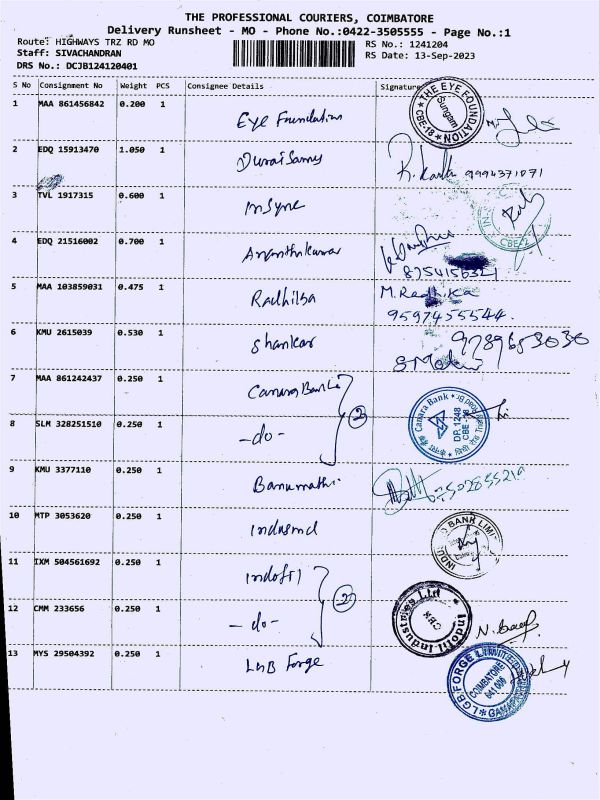 THE PROFESSIONAL COURIERS, COIMBATORE
Delivery Runsheet - MO - Phone No.:0422-3505555 - Page No.:1
Route: HIGHWAYS TRZ RD MO
RS No.: 1241204
Staff: SIVACHANDRAN
RS Date: 13-Sep-2023
DRS No.: DCJB124120401
S No Consignment No Weight PCS Consignee Details Signature
1 MAA 861456842 0.200 1 Eye Foundation
THE EYE FOUNDATION CBE-18 Sungam
2 EDQ 15913470 1.050 1 Duraisamy
9994371071
3 TVL 1917315 0.600 1 Insync
CBE-2
4 EDQ 21516002 0.700 1 Ananthkumar
8754156321
5 MAA 103859031 0.475 1 Radhika
M.Radhika
9597455544.
6 KMU 2615039 0.530 1 Shankar
9789653030
7 MAA 861242437 0.250 1 Canara Bank
2
Canara Bank DP. 1248 CBE-18
8 SLM 328251510 0.250 1 -do-
9 KMU 3377110 0.250 1 Banumathi
10 MTP 3053620 0.250 1 Indusind
BANK LIMI
11 IXM 504561692 0.250 1 Indofil
2
Indofil Industries Ltd CBE
12 CMM 233656 0.250 1 -do-
13 MYS 29504392 0.250 1 LGB Forge
LGB FORGE LIMITED COIMBATORE 641 006